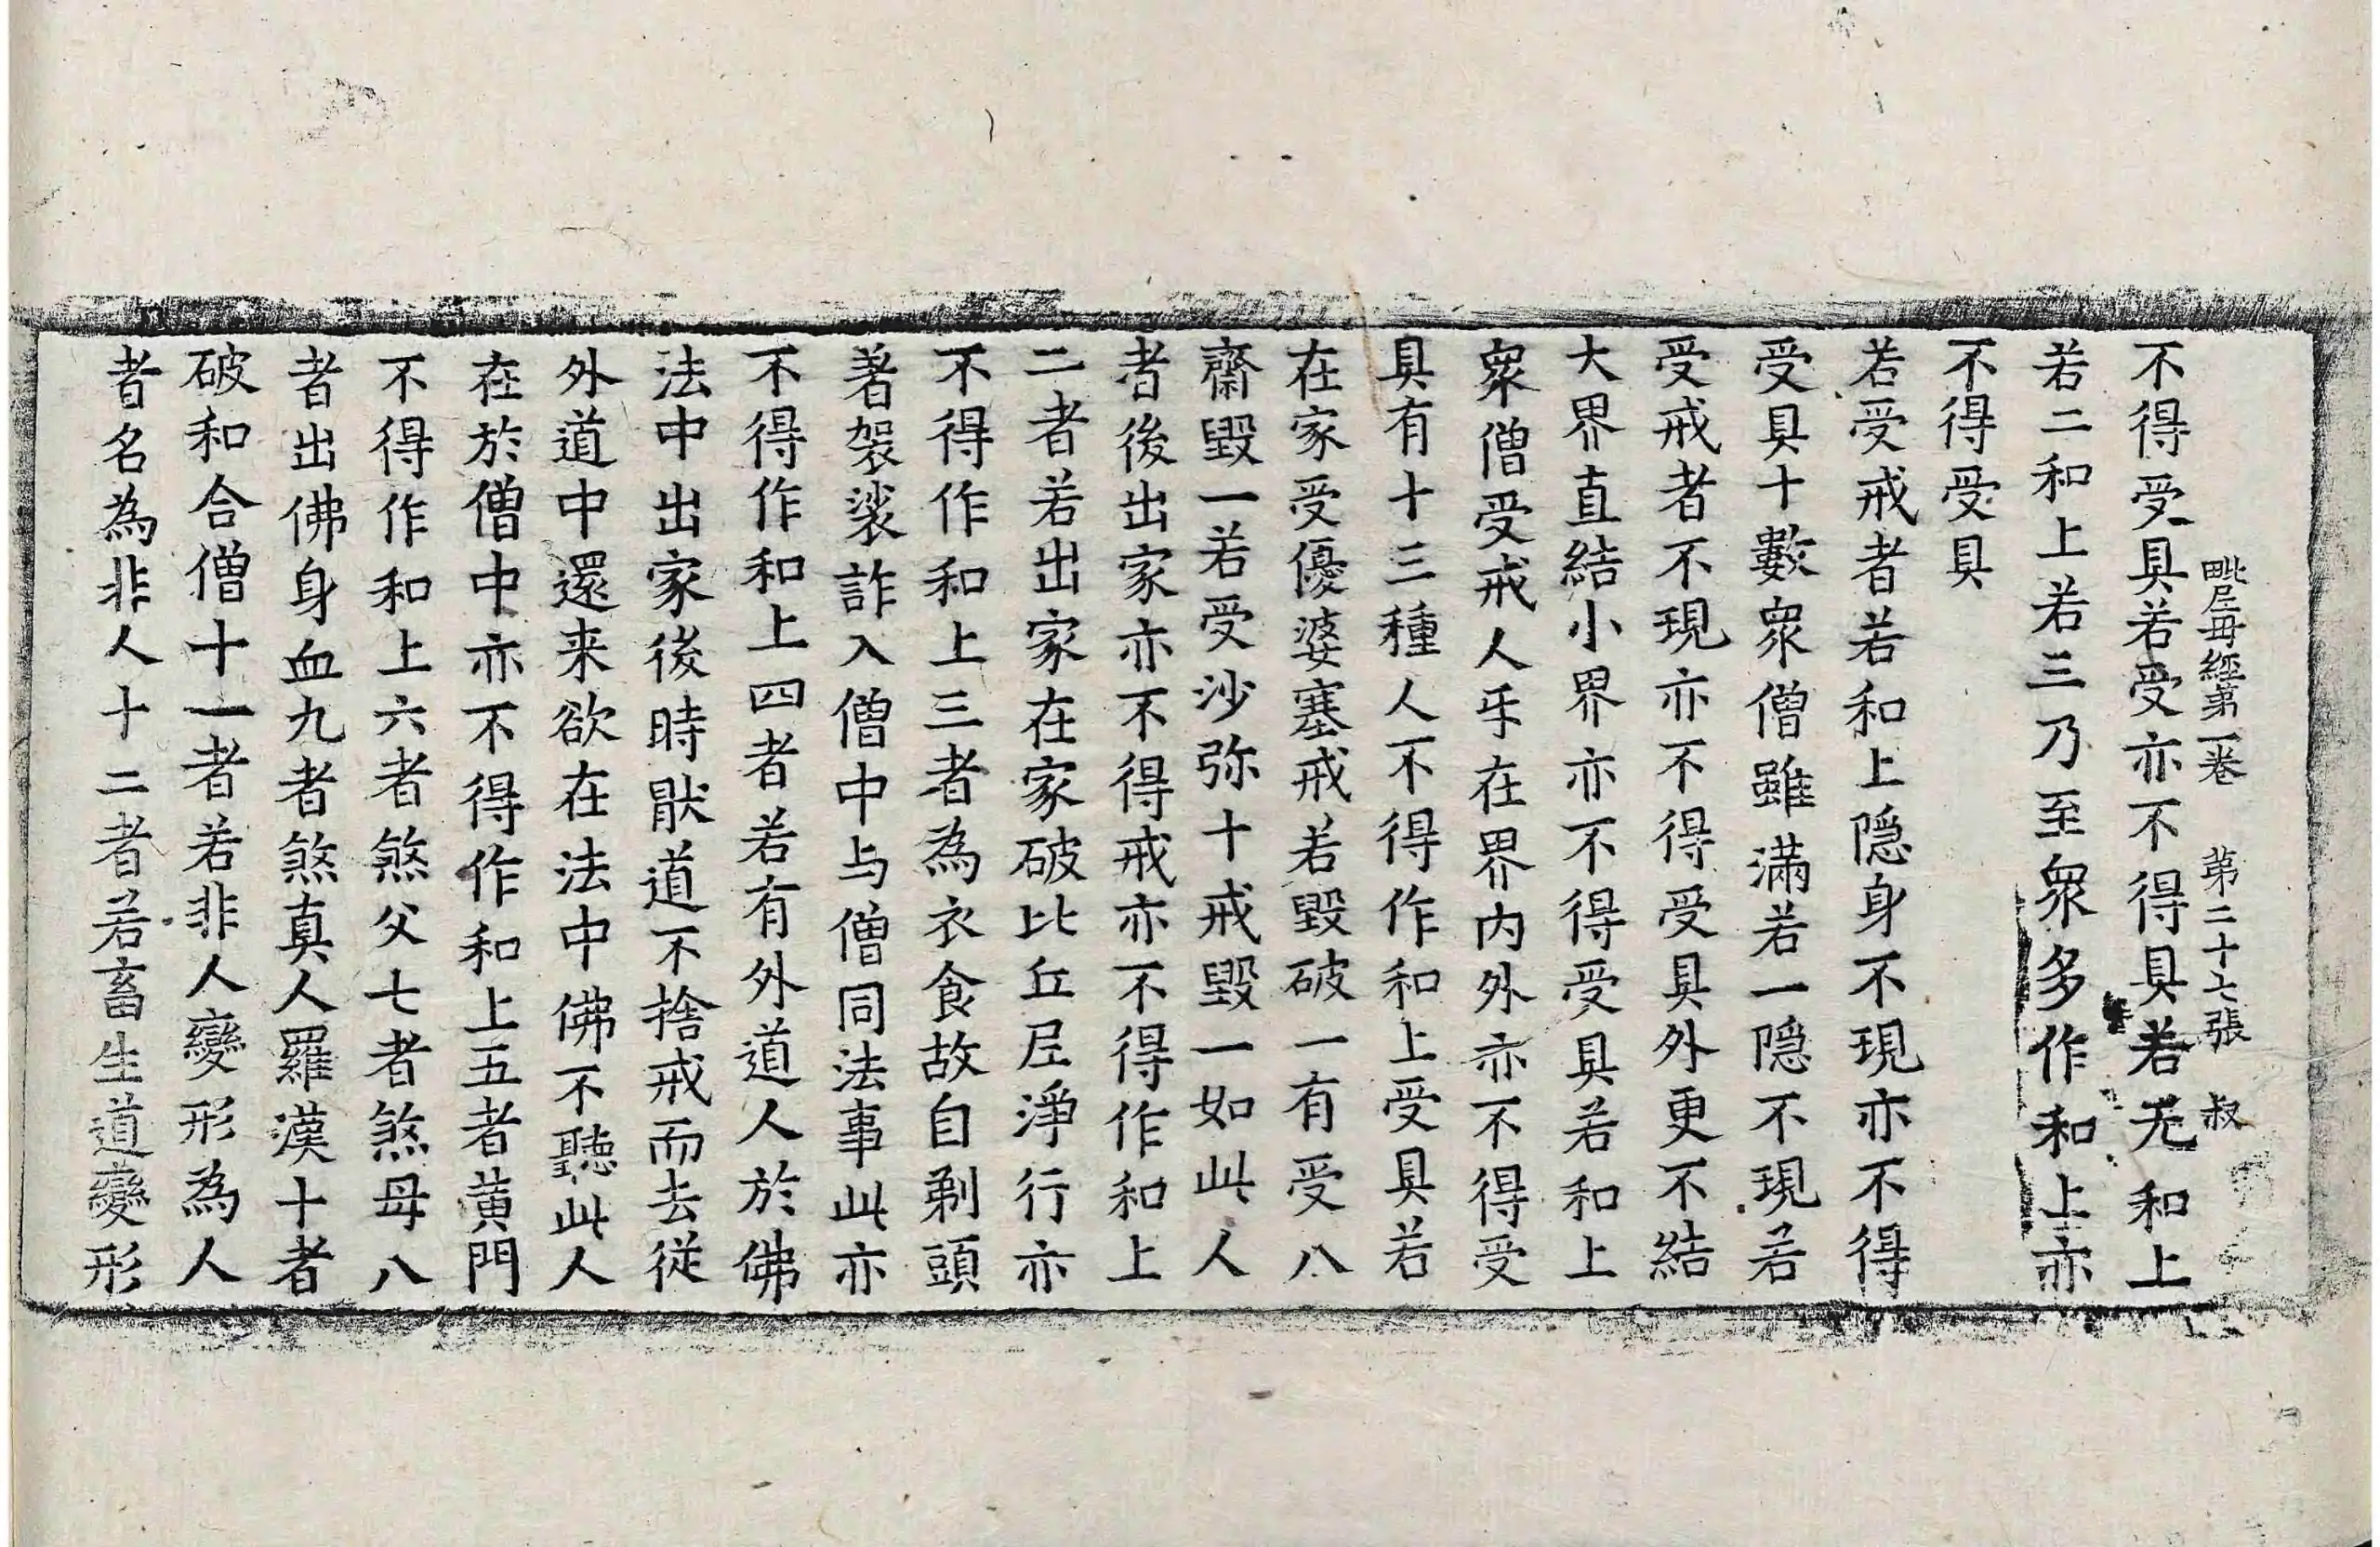 毗尼母經第一卷　第二十七張　叔
不得受具若受亦不得具若无和上
若二和上若三乃至衆多作和上亦
不得受具
若受戒者若和上隐身不現亦不得
受具十數衆僧雖滿若一隐不現若
受戒者不現亦不得受具外更不結
大界直結小界亦不得受具若和上
衆僧受戒人乎在界內外亦不得受
具有十三種人不得作和上受具若
在家受優婆塞戒若毀破一有受八
齋毀一若受沙弥十戒毀一如此人
者後出家亦不得戒亦不得作和上
二者若出家在家破比丘尼淨行亦
不得作和上三者為衣食故自剃頭
著袈裟詐入僧中与僧同法事此亦
不得作和上四者若有外道人於佛
法中出家後時猒道不捨戒而去従
外道中還来欲在法中佛不聽此人
在於僧中亦不得作和上五者黄門
不得作和上六者煞父七者煞母八
者出佛身血九者煞真人羅漢十者
破和合僧十一者若非人變形為人
者名為非人十二者若畜生道變形